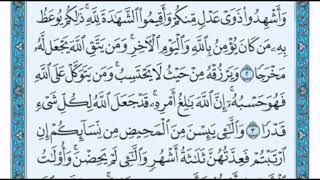 وَأَشْهِدُوا۟ ذَوَىْ عَدْلٍ مِّنكُمْ وَأَقِيمُوا۟ ٱلشَّهَـٰدَةَ لِلَّهِ ۚ ذَٰلِكُمْ يُوعَظُ
بِهِۦ مَن كَانَ يُؤْمِنُ بِٱللَّهِ وَٱلْيَوْمِ ٱلْـَٔاخِرِ ۚ وَمَن يَتَّقِ ٱللَّهَ يَجْعَل لَّهُۥ
مَخْرَجًا ٢ وَيَرْزُقْهُ مِنْ حَيْثُ لَا يَحْتَسِبُ ۚ وَمَن يَتَوَكَّلْ عَلَى ٱللَّهِ
فَهُوَ حَسْبُهُۥٓ ۚ إِنَّ ٱللَّهَ بَـٰلِغُ أَمْرِهِۦ ۚ قَدْ جَعَلَ ٱللَّهُ لِكُلِّ شَىْءٍ
قَدْرًا ٣ وَٱلَّـٰٓـِٔى يَئِسْنَ مِنَ ٱلْمَحِيضِ مِن نِّسَآئِكُمْ إِنِ
ٱرْتَبْتُمْ فَعِدَّتُهُنَّ ثَلَـٰثَةُ أَشْهُرٍ وَٱلَّـٰٓـِٔى لَمْ يَحِضْنَ ۚ وَأُو۟لَـٰتُ